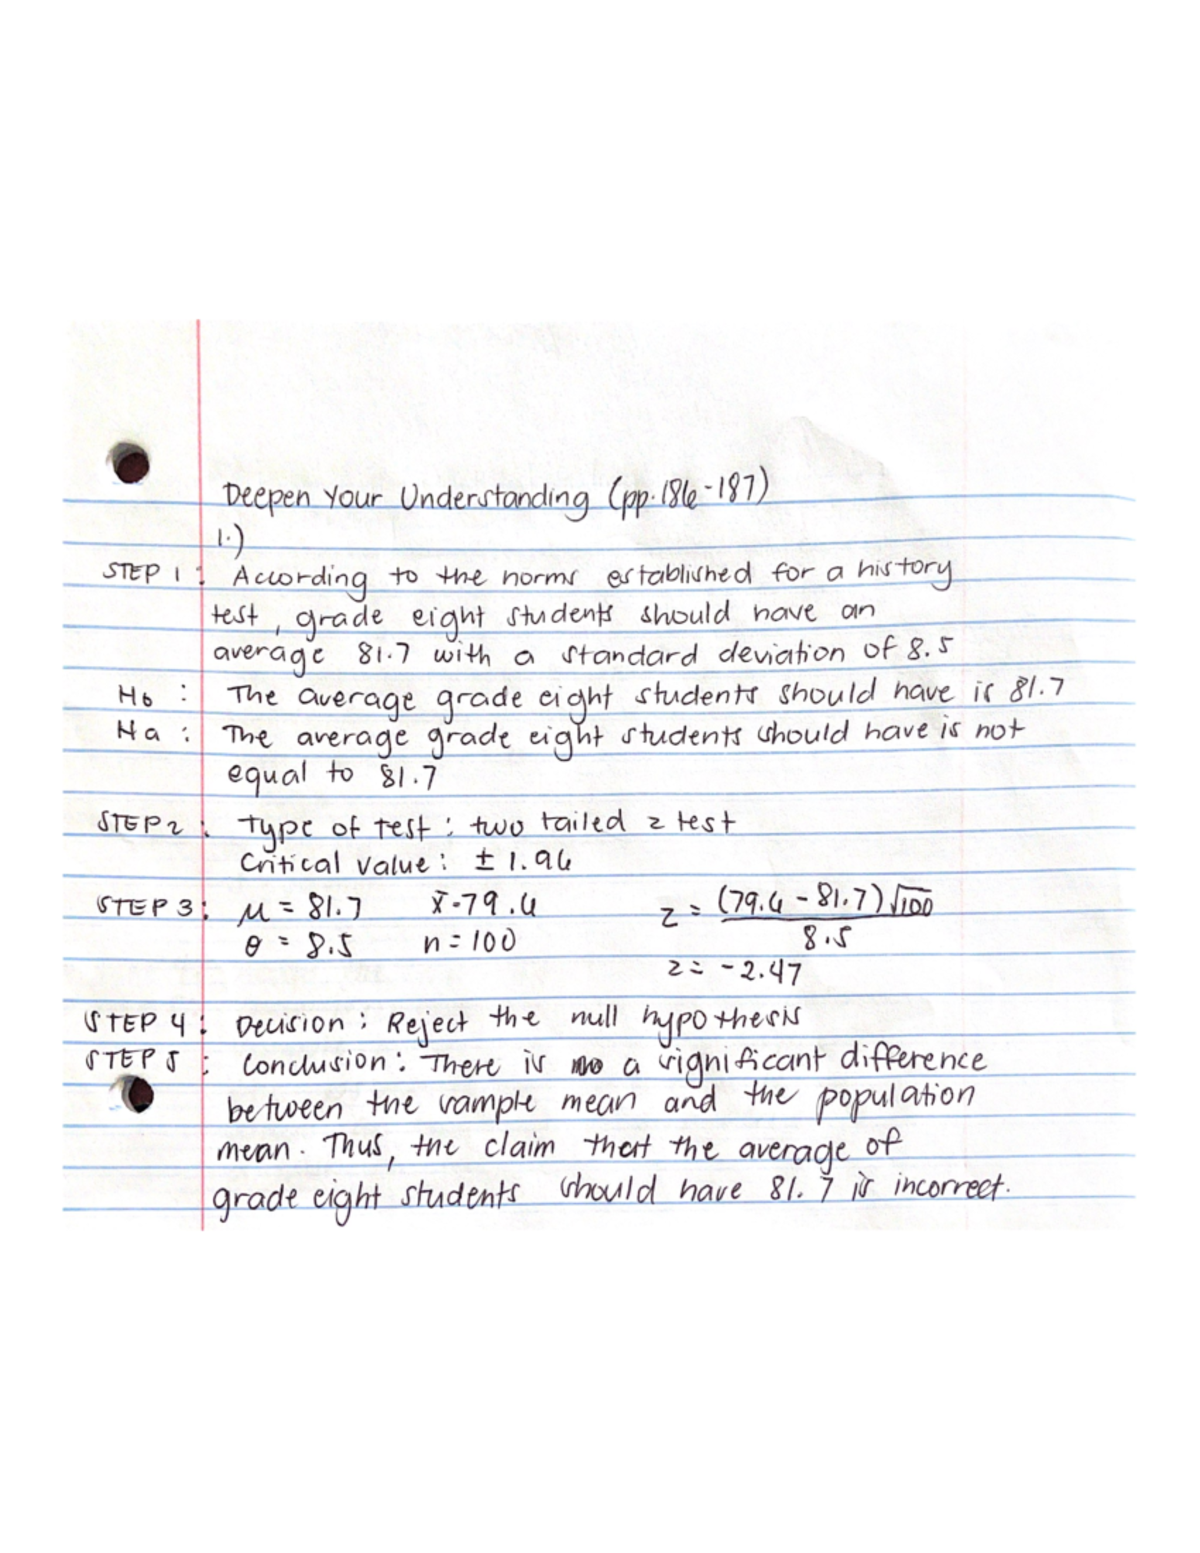 Deepen Your Understanding (pp. 186-187)
1.)
STEP 1: According to the norms established for a history
test, grade eight students should have an
average 81.7 with a standard deviation of 8.5
Ho: The average grade eight students should have is 81.7
Ha: The average grade eight students should have is not
equal to 81.7
STEP 2: Type of test: two tailed z test
Critical value: ± 1.96
STEP 3: μ = 81.7 x̄-79.6 z = (79.6 - 81.7)√100
θ = 8.5 n = 100 8.5
z = -2.47
STEP 4: Decision: Reject the null hypothesis
STEP 5: Conclusion: There is a significant difference
between the sample mean and the population
mean. Thus, the claim that the average of
grade eight students should have 81.7 is incorrect.